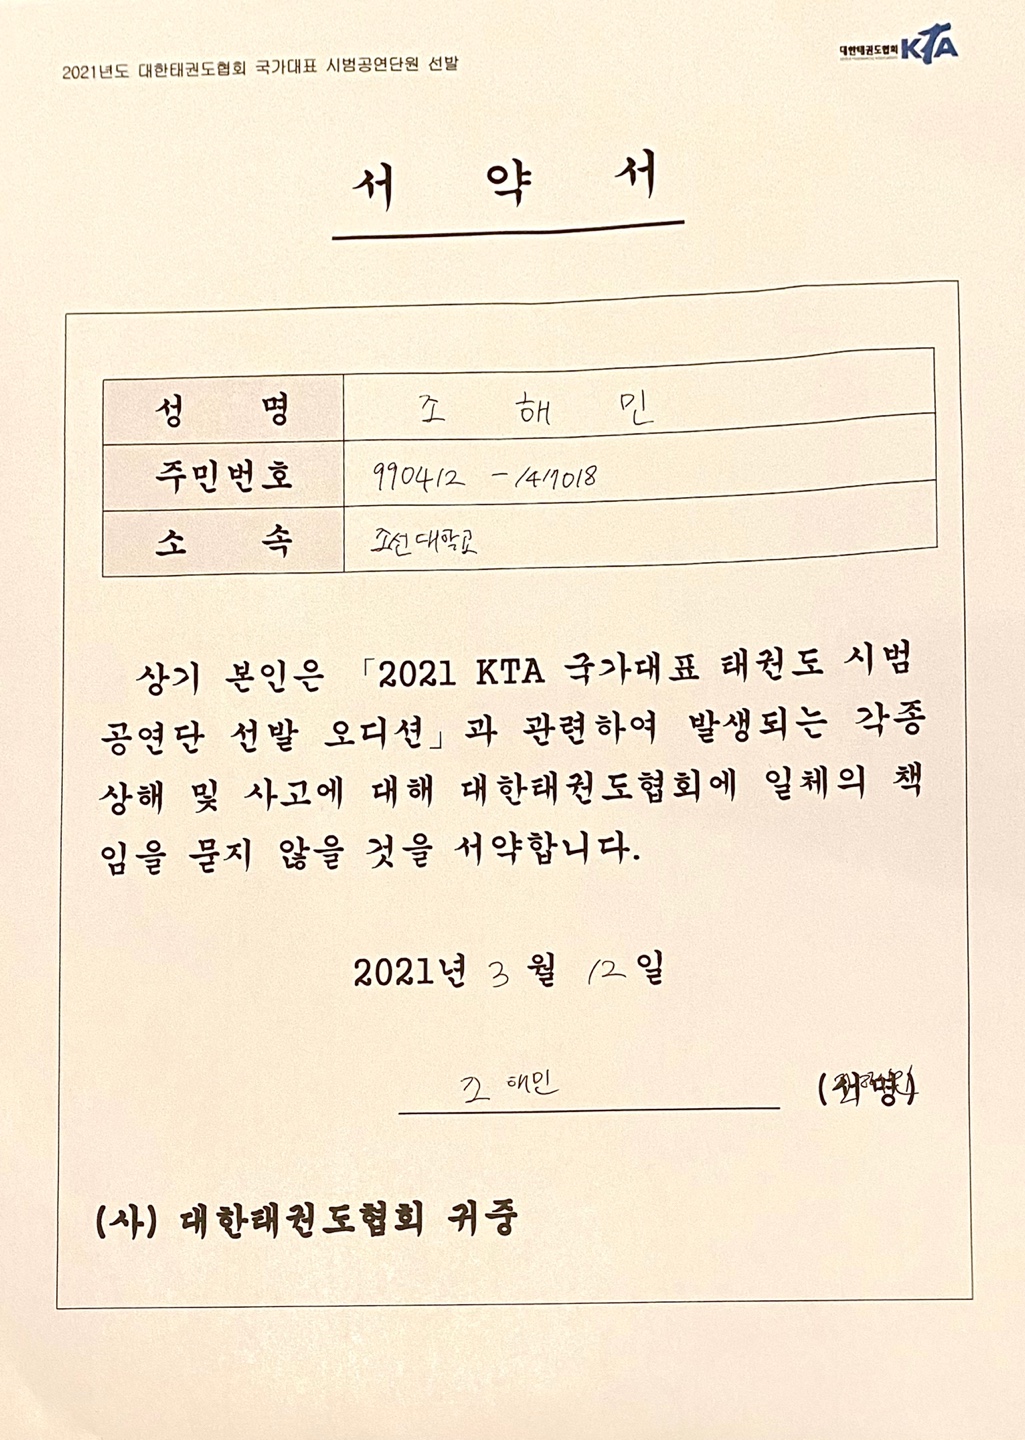 2021년도 대한태권도협회 국가대표 시범공연단원 선발
대한태권도협회 KTA
서 약 서
성 명 조 해 민
주민번호 990412 - 1417018
소 속 조선대학교
상기 본인은 「2021 KTA 국가대표 태권도 시범
공연단 선발 오디션」과 관련하여 발생되는 각종
상해 및 사고에 대해 대한태권도협회에 일체의 책
임을 묻지 않을 것을 서약합니다.
2021년 3 월 12 일
조 해민 (서명)
(사) 대한태권도협회 귀중